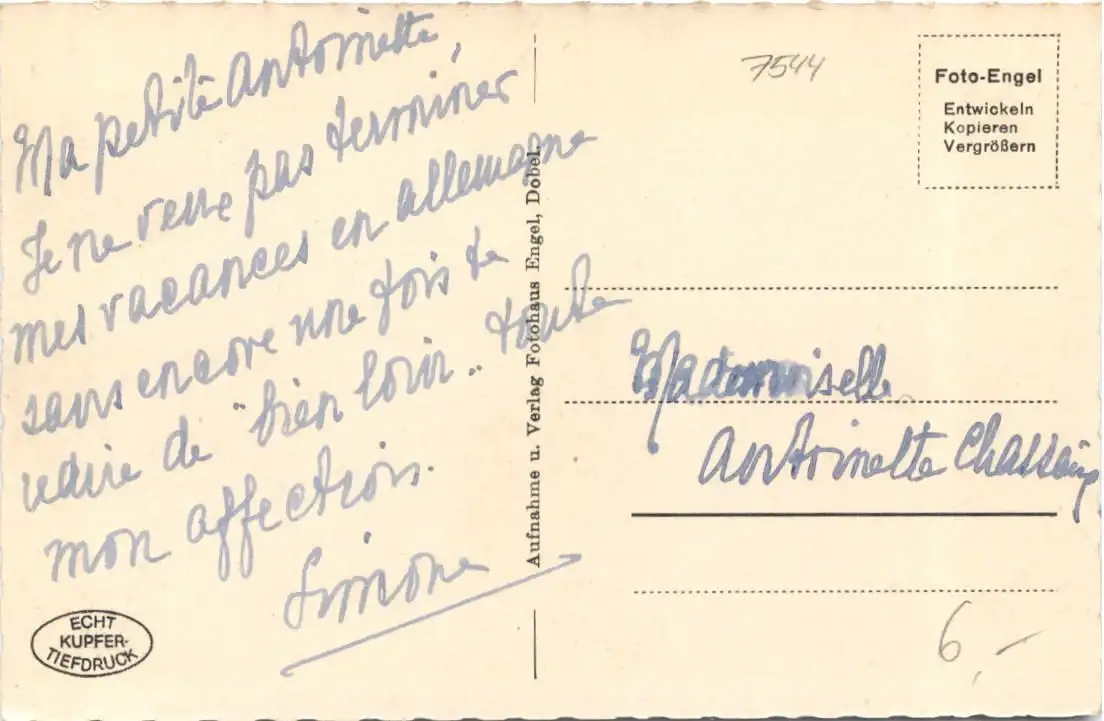 Ma petite Antoinette,
Je ne veux pas terminer
mes vacances en allemagne
sans encore une fois te
redire de "bien loin" toute
mon affection.
Simone
ECHT
KUPFER-
TIEFDRUCK
Aufnahme u. Verlag Fotohaus Engel, Dobel.
7544
Foto-Engel
Entwickeln
Kopieren
Vergrößern
Mademoiselle
Antoinette
6,-